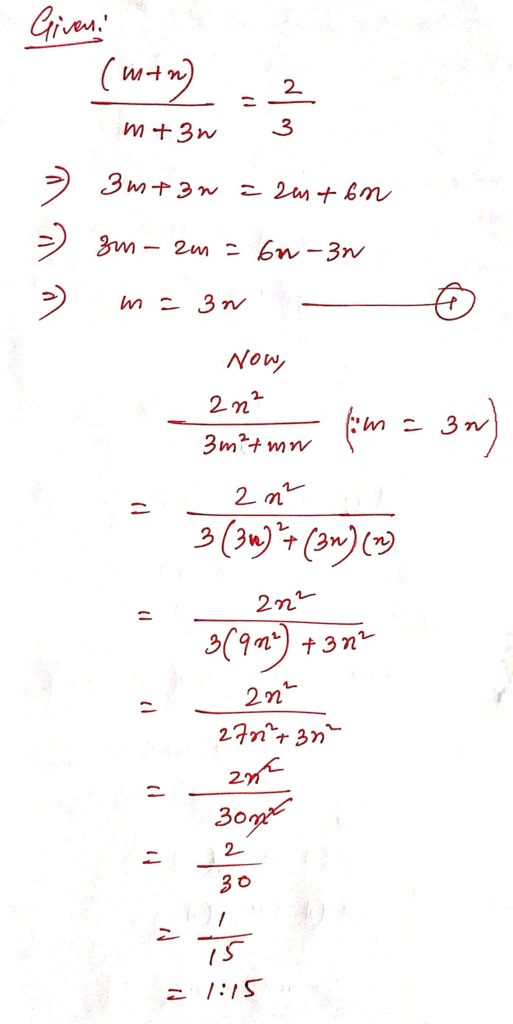 Given:
(m+n)/(m+3n) = 2/3
⇒ 3m+3n = 2m+6n
⇒ 3m-2m = 6n-3n
⇒ m = 3n ——— ①
Now,
2n²/(3m²+mn) (∵ m = 3n)
= 2n²/(3(3n)²+(3n)(n))
= 2n²/(3(9n²)+3n²)
= 2n²/(27n²+3n²)
= 2n²/30n²
= 2/30
= 1/15
= 1:15